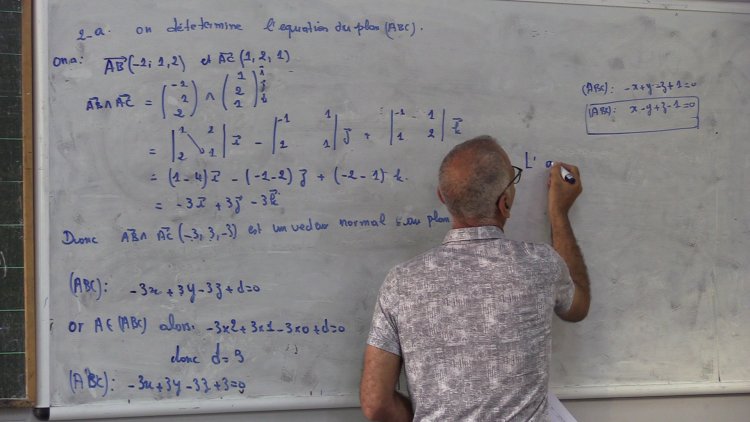 2-a. on détetermine l'equation du plan (ABC).
on a: AB(-1; 1, 2) et AC(1, 2, 1)
AB∧AC = (-1 1 2) ∧ (1 2 1) i j k
= |1 2 2 1| i - |-1 1 2 1| j + |-1 1 1 2| k
= (1-4)i - (-1-2)j + (-2-1)k.
= -3i + 3j - 3k
Donc AB∧AC(-3, 3, -3) est un vecteur normal au plan
(ABC): -3x + 3y - 3z + d = 0
or A∈(ABC) alors, -3x2 + 3x1 - 3x0 + d = 0
donc d = 3
(ABC): -3x + 3y - 3z + 3 = 0
(ABC): -x + y - z + 1 = 0
(ABC): x - y + z - 1 = 0
L'